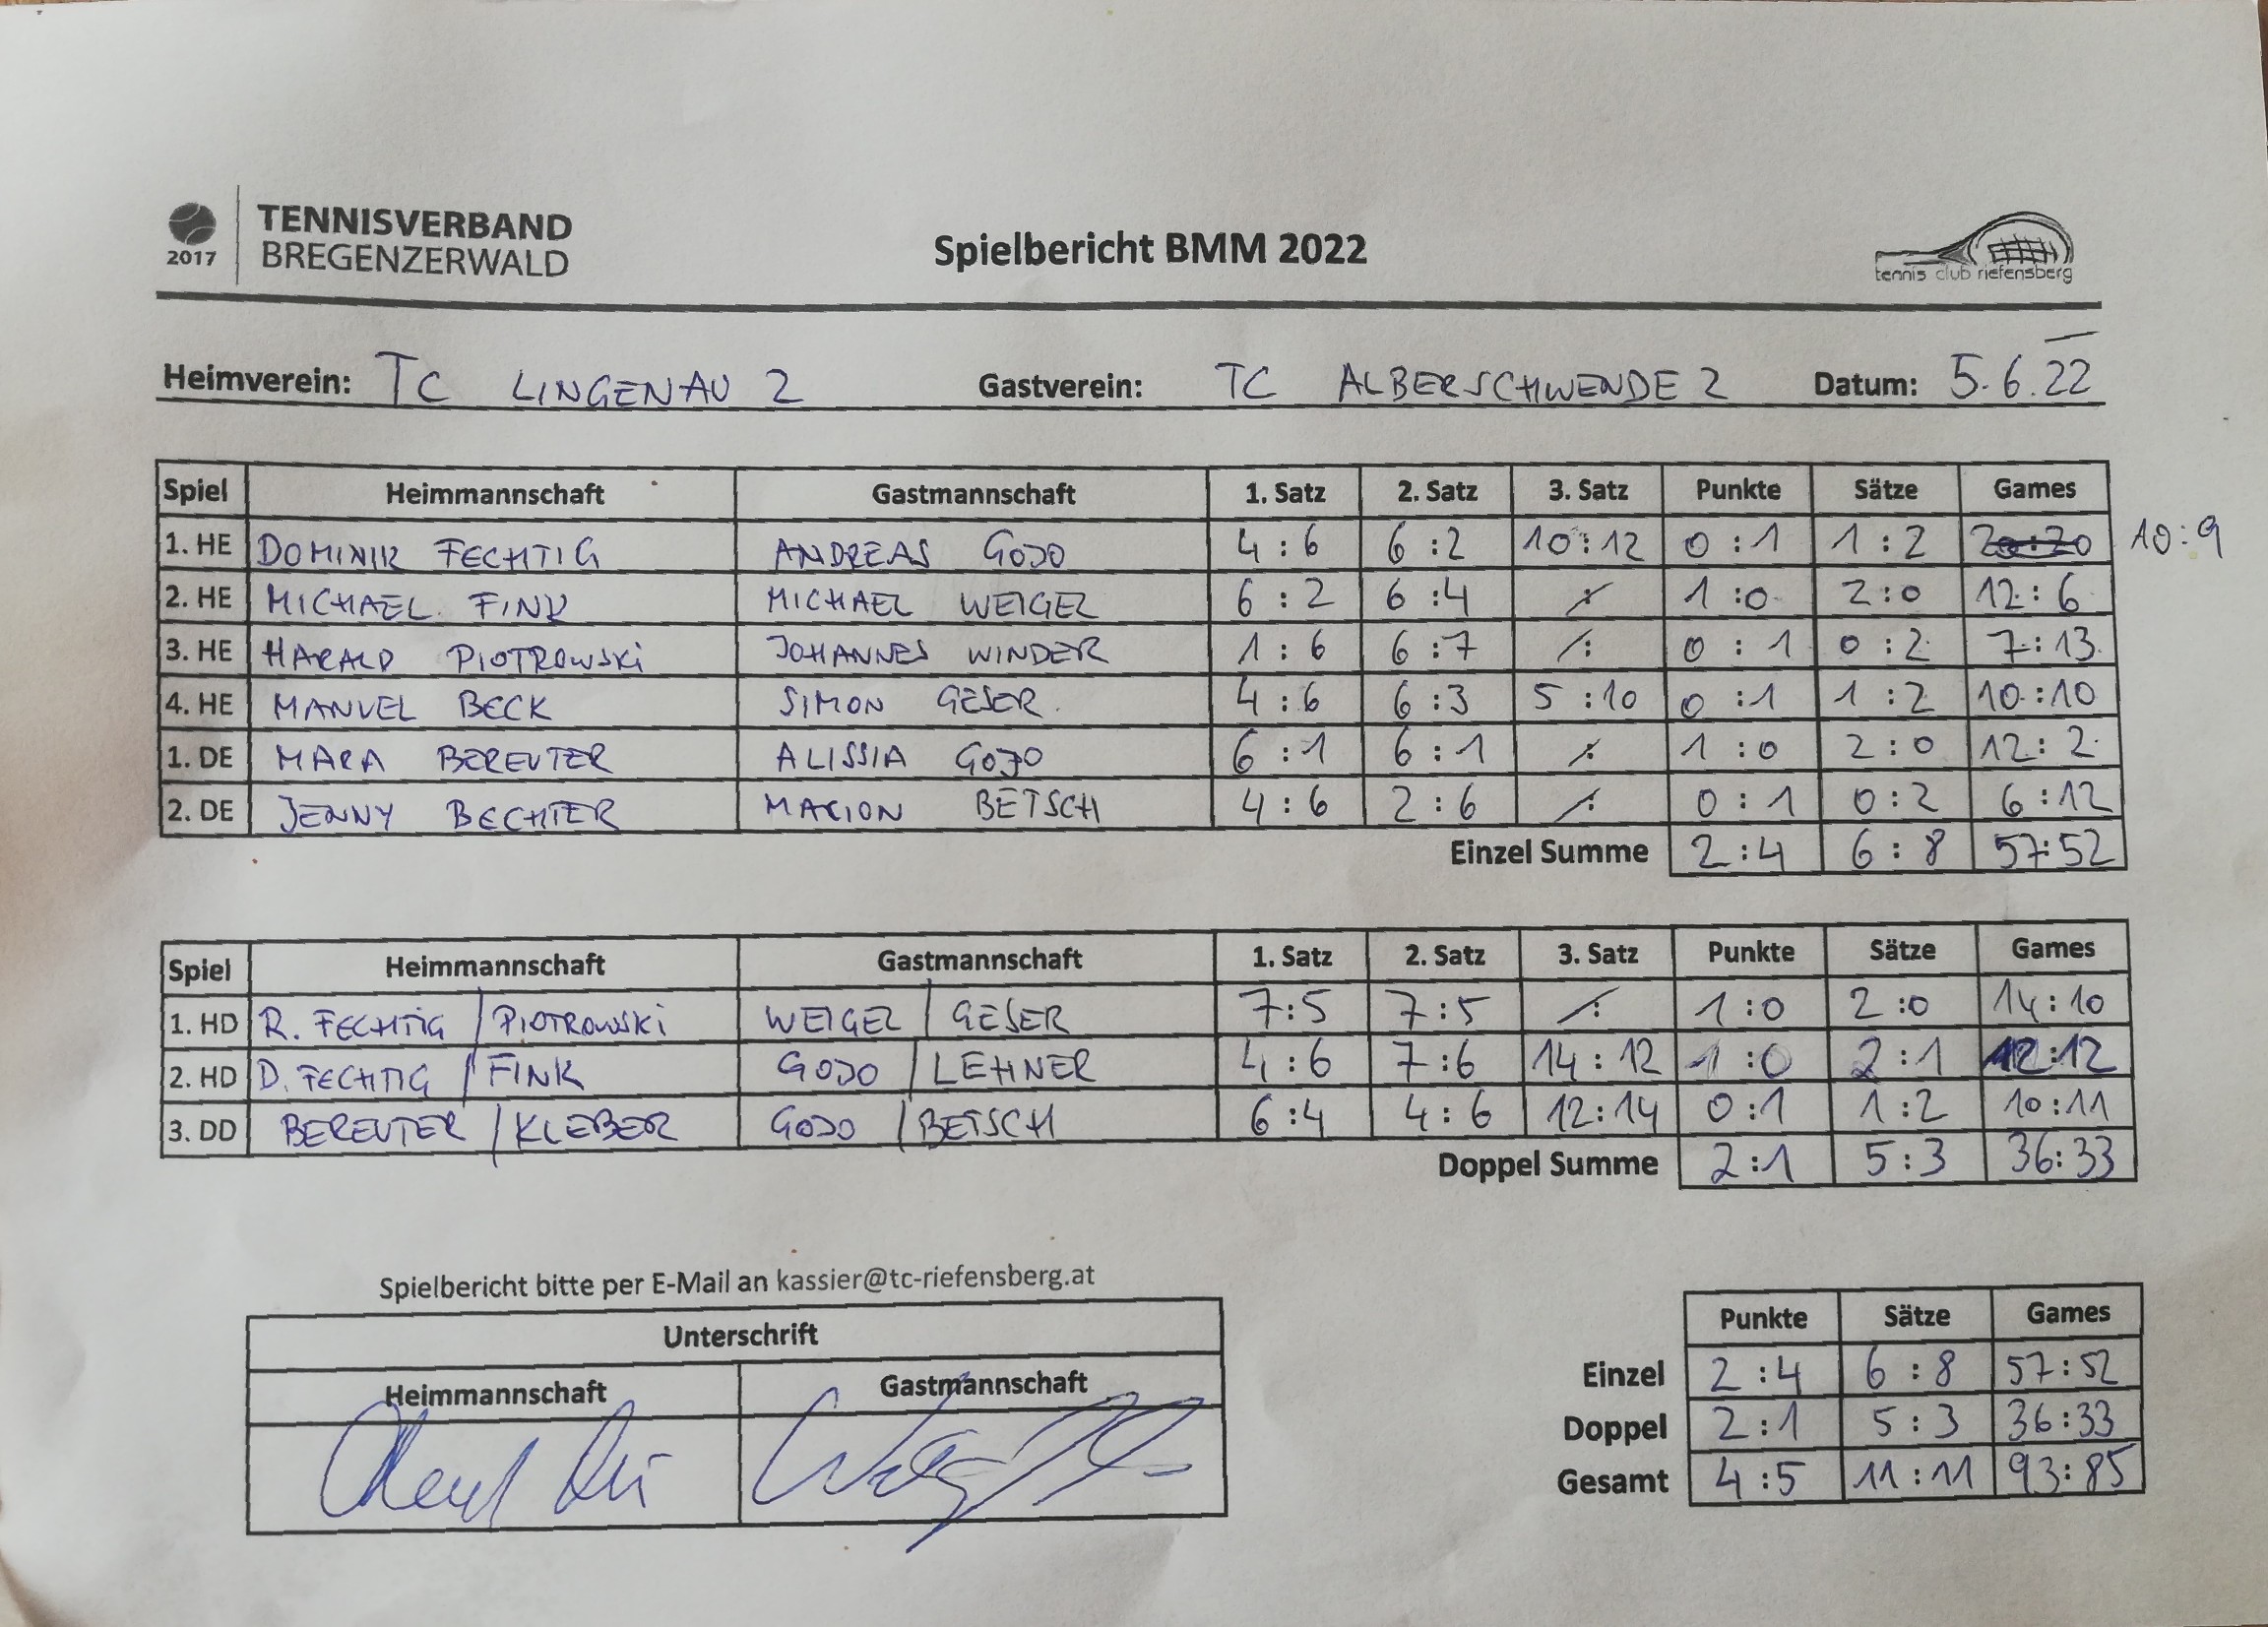 2017 TENNISVERBAND
BREGENZERWALD
Spielbericht BMM 2022
tennis club riefensberg
Heimverein: TC LINGENAU 2 Gastverein: TC ALBERSCHWENDE 2 Datum: 5.6.22
Spiel Heimmannschaft Gastmannschaft 1. Satz 2. Satz 3. Satz Punkte Sätze Games
1. HE DOMINIK FECHTIG ANDREAS GOJO 4:6 6:2 10:12 0:1 1:2 20:20 10:9
2. HE MICHAEL FINK MICHAEL WEIGEL 6:2 6:4 / : 1:0 2:0 12:6
3. HE HARALD PIOTROWSKI JOHANNES WINDER 1:6 6:7 / : 0:1 0:2 7:13
4. HE MANUEL BECK SIMON GESER 4:6 6:3 5:10 0:1 1:2 10:10
1. DE MARA BEREUTER ALISSIA GOJO 6:1 6:1 / : 1:0 2:0 12:2
2. DE JENNY BECHTER MARION BETSCH 4:6 2:6 / : 0:1 0:2 6:12
Einzel Summe 2:4 6:8 57:52
Spiel Heimmannschaft Gastmannschaft 1. Satz 2. Satz 3. Satz Punkte Sätze Games
1. HD R. FECHTIG / PIOTROWSKI WEIGEL / GESER 7:5 7:5 / : 1:0 2:0 14:10
2. HD D. FECHTIG / FINK GOJO / LEHNER 4:6 7:6 14:12 1:0 2:1 12:12
3. DD BEREUTER / KLEBER GOJO / BETSCH 6:4 4:6 12:14 0:1 1:2 10:11
Doppel Summe 2:1 5:3 36:33
Spielbericht bitte per E-Mail an kassier@tc-riefensberg.at
Unterschrift
Heimmannschaft Gastmannschaft
Punkte Sätze Games
Einzel 2:4 6:8 57:52
Doppel 2:1 5:3 36:33
Gesamt 4:5 11:11 93:85